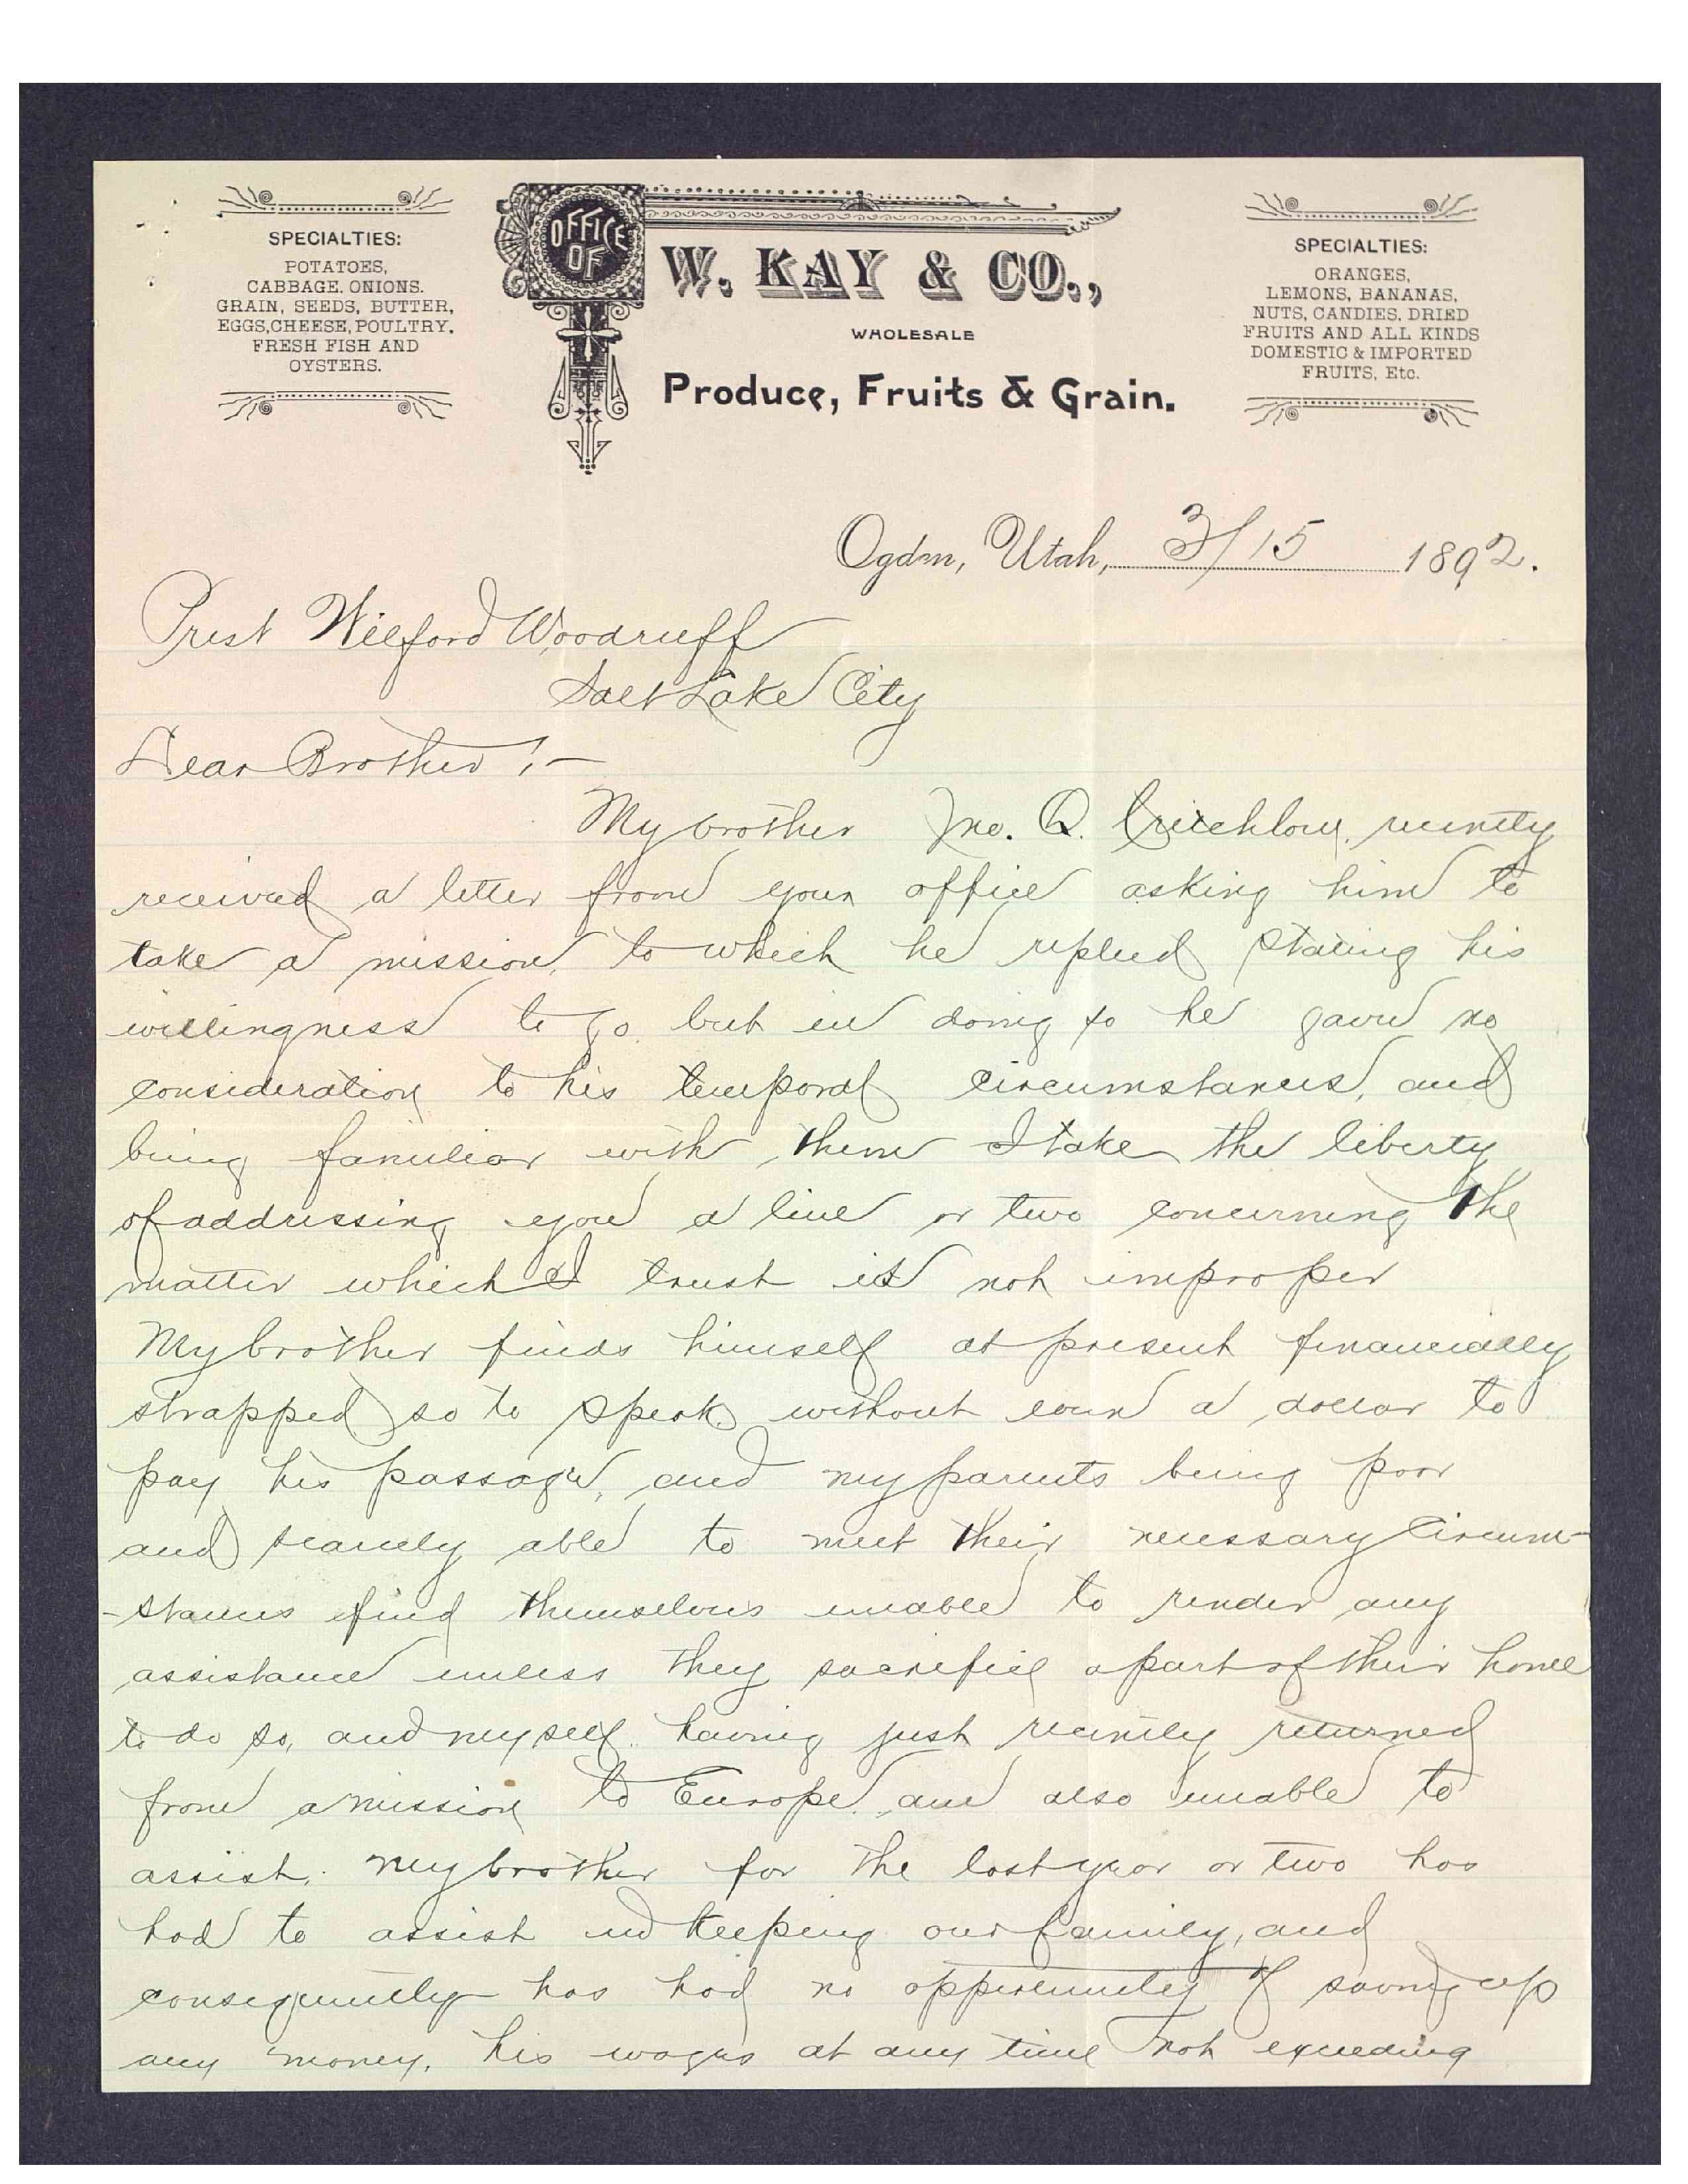 SPECIALTIES:
POTATOES,
CABBAGE, ONIONS.
GRAIN, SEEDS, BUTTER,
EGGS, CHEESE, POULTRY,
FRESH FISH AND
OYSTERS.
OFFICE
OF
W. KAY & CO.,
WHOLESALE
Produce, Fruits & Grain.
SPECIALTIES:
ORANGES,
LEMONS, BANANAS,
NUTS, CANDIES, DRIED
FRUITS AND ALL KINDS
DOMESTIC & IMPORTED
FRUITS, Etc.
Ogden, Utah, 3/15 1892.
Prest Wilford Woodruff
Salt Lake City
Dear Brother!-
My brother Jno. Q. Critchlow, recently
received a letter from your office asking him to
take a mission, to which he replied stating his
willingness to go, but in doing so he gave no
consideration to his temporal circumstances, and
being familiar with them I take the liberty
of addressing you a line or two concerning the
matter which I trust is not improper
My brother finds himself at present financially
strapped so to speak without even a dollar to
pay his passage, and my parents being poor
and scarcely able to meet their necessary circum-
-stances find themselves unable to render any
assistance unless they sacrifice a part of their home
to do so, and myself having just recently returned
from a mission to Europe am also unable to
assist. My brother for the last year or two has
had to assist in keeping our family, and
consequently has had no opportunity of saving up
any money, his wages at any time not exceeding